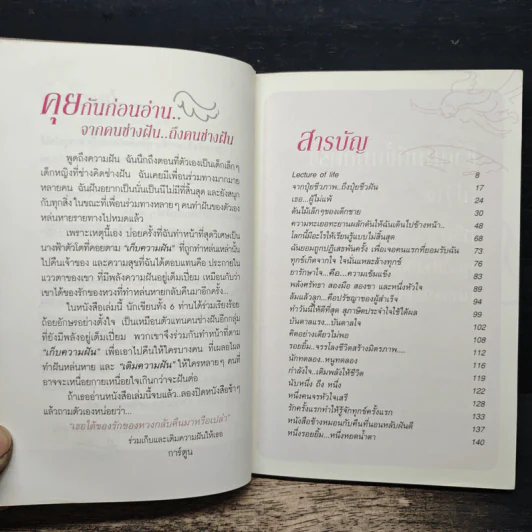 คุยกันก่อนอ่าน..
จากคนช่างฝัน..ถึงคนช่างฝัน
พูดถึงความฝัน ฉันนึกถึงตอนที่ตัวเองเป็นเด็กเล็กๆ
เด็กหญิงที่ช่างคิดช่างฝัน ฉันเคยมีเพื่อนร่วมทางมากมาย
หลายคน ฉันฝันอยากเป็นนั่นเป็นนี่ไม่มีที่สิ้นสุด และยังสนุก
กับทุกสิ่ง ในขณะที่เพื่อนร่วมทางหลายๆ คนทำฝันของตัวเอง
หล่นหายรายทางไปหมดแล้ว
เพราะเหตุนี้เอง บ่อยครั้งที่ฉันทำหน้าที่สุดวิเศษเป็น
นางฟ้าตัวโตที่คอยตาม "เก็บความฝัน" ที่ถูกทำหล่นเหล่านั้น
ไปคืนเจ้าของ และความสุขที่ฉันได้ตอบแทนคือ ประกายใน
แววตาของเขา ที่มีพลังความฝันอยู่เต็มเปี่ยม เหมือนกับว่า
เขาได้ของรักของหวงที่ทำหล่นหายกลับคืนมาอีกครั้ง...
ในหนังสือเล่มนี้ นักเขียนทั้ง 6 ท่านได้ร่วมเรียงร้อย
ถ้อยอักษรอย่างตั้งใจ เป็นเหมือนตัวแทนคนช่างฝันอีกกลุ่ม
ที่ยังมีพลังอยู่เต็มเปี่ยม พวกเขาจึงร่วมกันทำหน้าที่ตาม
"เก็บความฝัน" เพื่อเอาไปคืนให้ใครบางคน ที่เผลอไผล
ทำฝันหล่นหาย และ "เติมความฝัน" ให้ใครหลายๆ คนที่
อาจจะเหนื่อยกายเหนื่อยใจเกินกว่าจะฝันต่อ
ถ้าเธออ่านหนังสือเล่มนี้จบแล้ว..ลองปิดหนังสือช้าๆ
แล้วถามตัวเองหน่อยว่า...
"เธอได้ของรักของหวงกลับคืนมาหรือเปล่า?"
ร่วมเก็บและเติมความฝันให้เธอ
การ์ตูน
สารบัญ
Lecture of life 8
จากปุ๋ยชีวภาพ...ถึงปุ๋ยชีวฝัน 17
เธอ...ผู้ไม่แพ้ 24
ต้นไม้เล็กๆของเด็กชาย 30
ความทะเยอทะยานผลักดันให้ฉันเดินไปข้างหน้า... 48
โลกนี้มีอะไรให้เรียนรู้แบบไม่สิ้นสุด 68
ฉันยอมถูกปฏิเสธพันครั้ง เพื่อเจอคนแรกที่ยอมรับฉัน 73
ทุกข์เกิดจากใจ ใจนั่นแหละล้างทุกข์ 76
ยารักษาใจ...คือ...ความเข้มแข็ง 83
พลังศรัทธา สองมือ สองขา และหนึ่งหัวใจ 89
ล้มแล้วลุก...คือปรัชญาของผู้สำเร็จ 94
ทำวันนี้ให้ดีที่สุด สุภาษิตประจำใจใช้ได้ผล 99
บันดาลแรง...บันดาลใจ 102
คิดอย่างเดียวไม่พอ 109
รอยยิ้ม...จรรโลงชีวิตสร้างมิตรภาพ.... 112
นักทดลอง...หนูทดลอง 116
กำลังใจ...เติมพลังให้ชีวิต 119
นับหนึ่ง ถึง หนึ่ง 122
หนึ่งคนจรหัวใจเสรี 128
รักครั้งแรกทำให้รู้จักทุกข์ครั้งแรก 133
หนังสือข้างหมอนกับคืนที่นอนหลับฝันดี 137
หนึ่งรอยยิ้ม...หนึ่งหยดน้ำตา 140